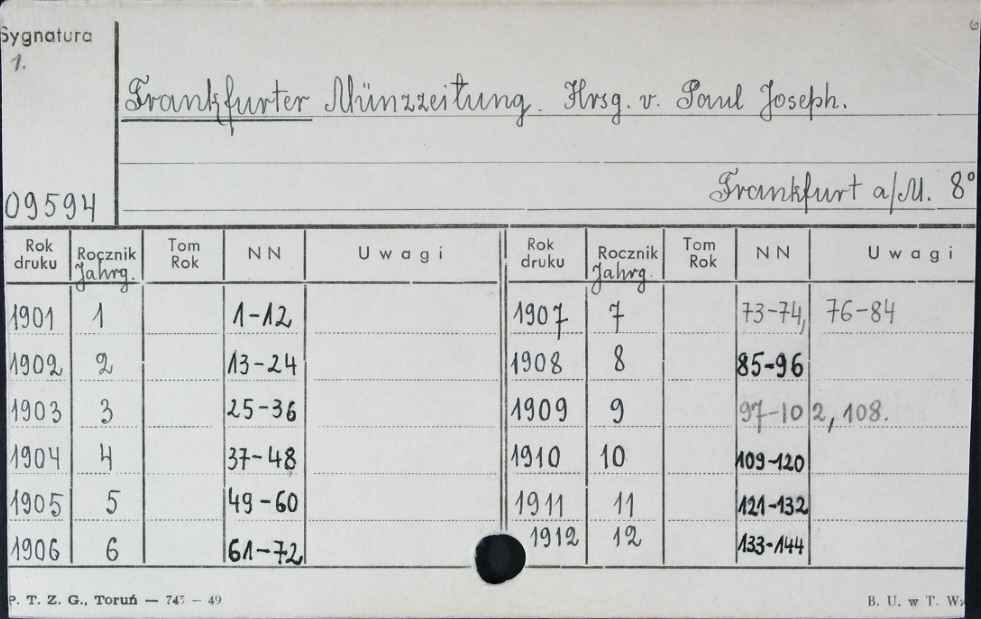 Sygnatura
1.
Frankfurter Münzzeitung. Hrsg. v. Paul Joseph.
Frankfurt a/M. 8°
09594
Rok druku Rocznik Jahrg. Tom Rok NN Uwagi Rok druku Rocznik Jahrg. Tom Rok NN Uwagi
1901 1 1-12 1907 7 73-74, 76-84
1902 2 13-24 1908 8 85-96
1903 3 25-36 1909 9 97-102, 108.
1904 4 37-48 1910 10 109-120
1905 5 49-60 1911 11 121-132
1906 6 61-72 1912 12 133-144
P. T. Z. G., Toruń — 745 — 49 B. U. w T.